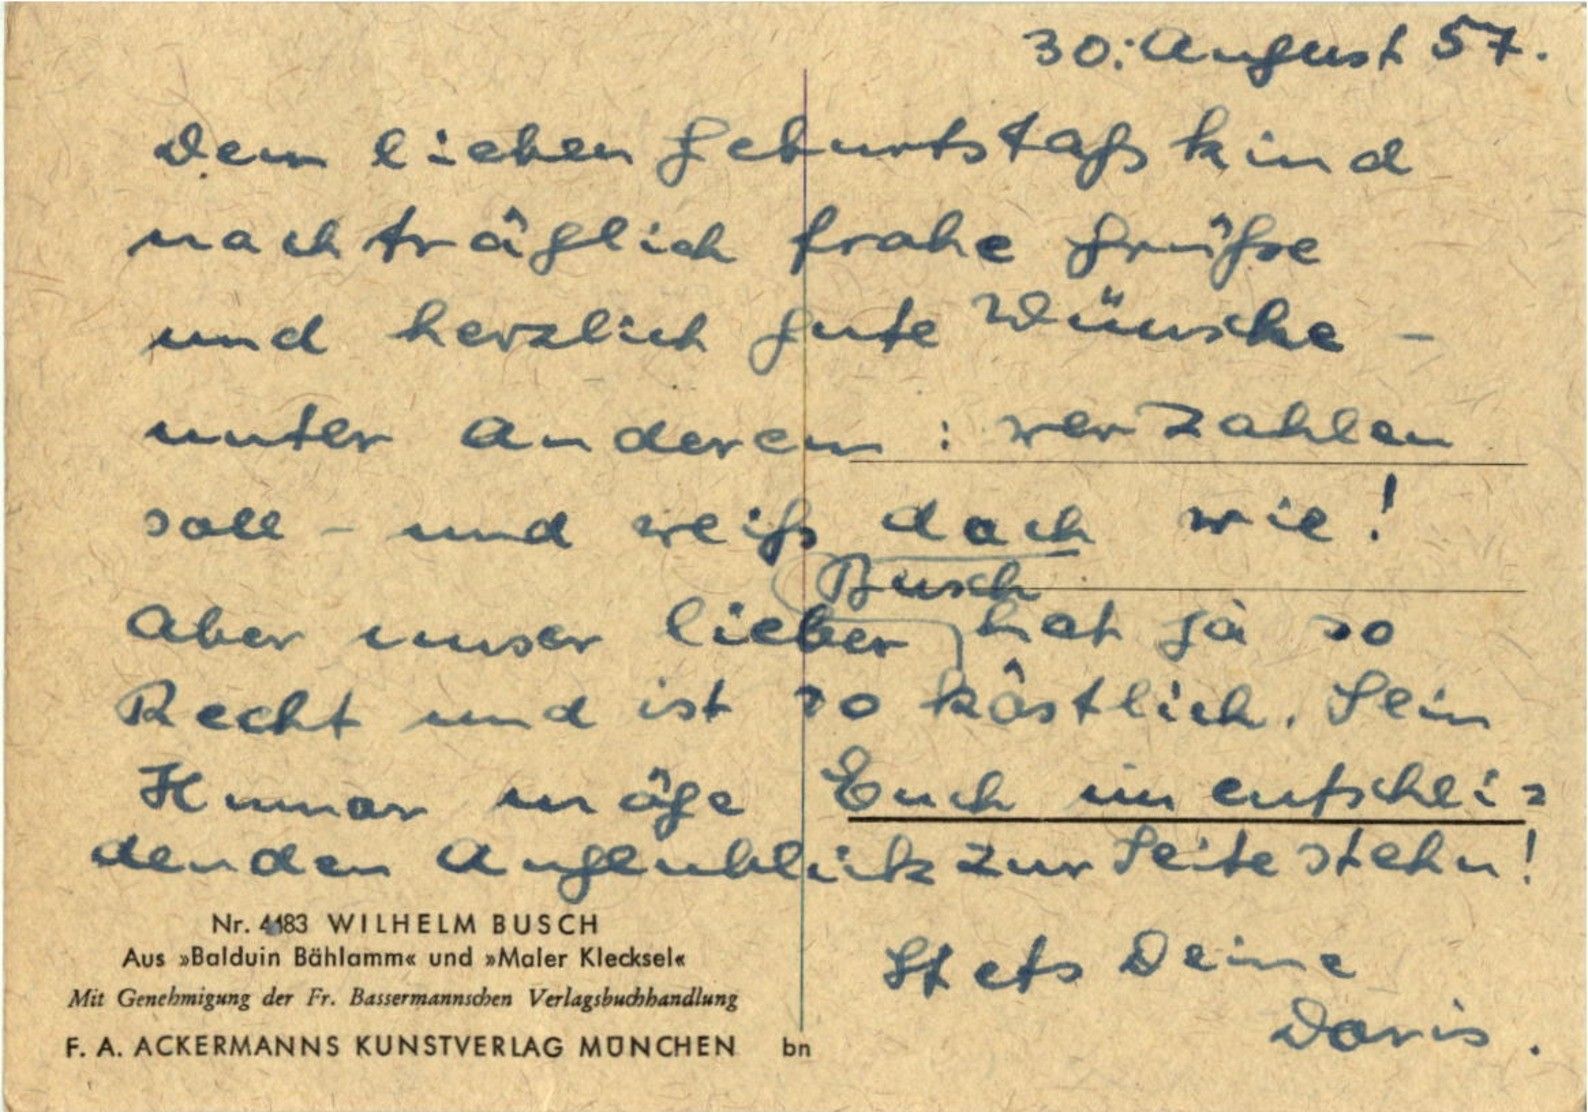 30. August 57.
Dem lieben Geburtstagskind
nachträglich frohe Grüße
und herzlich gute Wünsche –
unter Anderem : wer zahlen
soll – und weiß doch wie!
Busch
Aber unser lieber hat ja so
Recht und ist so köstlich. Sein
Humor möge Euch im entschei=
denden Augenblick zur Seite stehn!
Nr. 4183 WILHELM BUSCH
Aus »Balduin Bählamm« und »Maler Klecksel«
Mit Genehmigung der Fr. Bassermannschen Verlagsbuchhandlung
F. A. ACKERMANNS KUNSTVERLAG MÜNCHEN bn
Stets Deine
Doris.